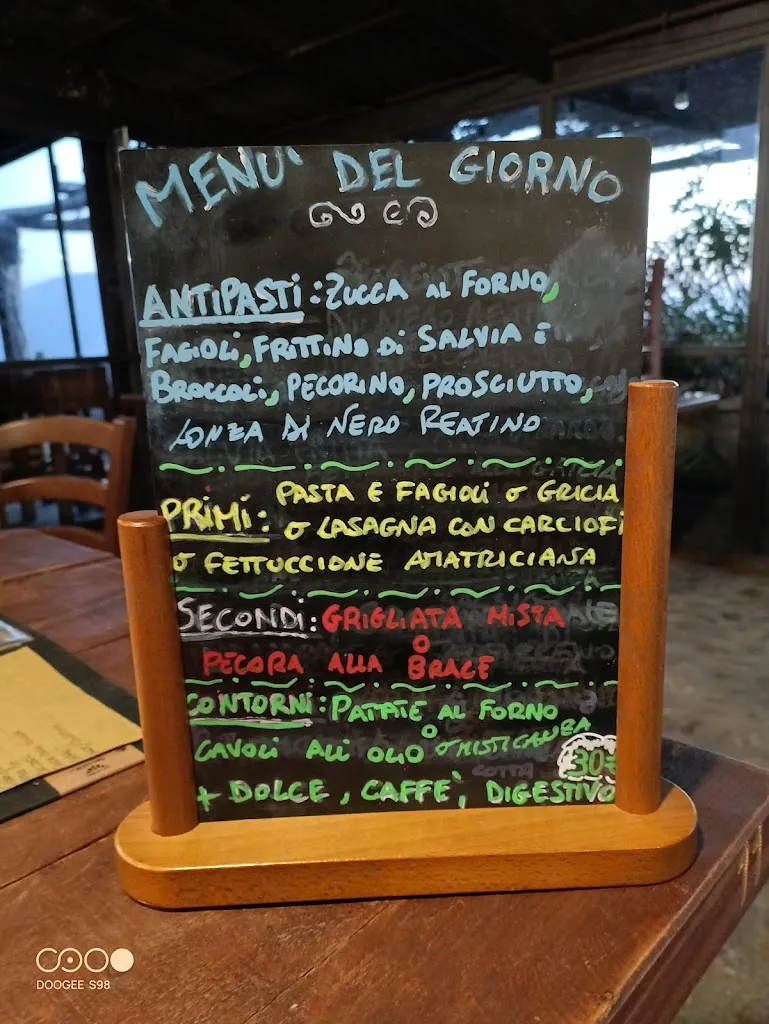 MENU' DEL GIORNO
ANTIPASTI: ZUCCA AL FORNO,
FAGIOLI, FRITTINO DI SALVIA E
BROCCOLI, PECORINO, PROSCIUTTO,
LONZA DI NERO REATINO
PRIMI: PASTA E FAGIOLI O GRICIA
O LASAGNA CON CARCIOFI
O FETTUCCIONE AMATRICIANA
SECONDI: GRIGLIATA MISTA
O
PECORA ALLA BRACE
CONTORNI: PATATE AL FORNO
O
CAVOLI ALL' OLIO O MISTICANZA
30€
+ DOLCE, CAFFÈ, DIGESTIVO
DOOGEE S98